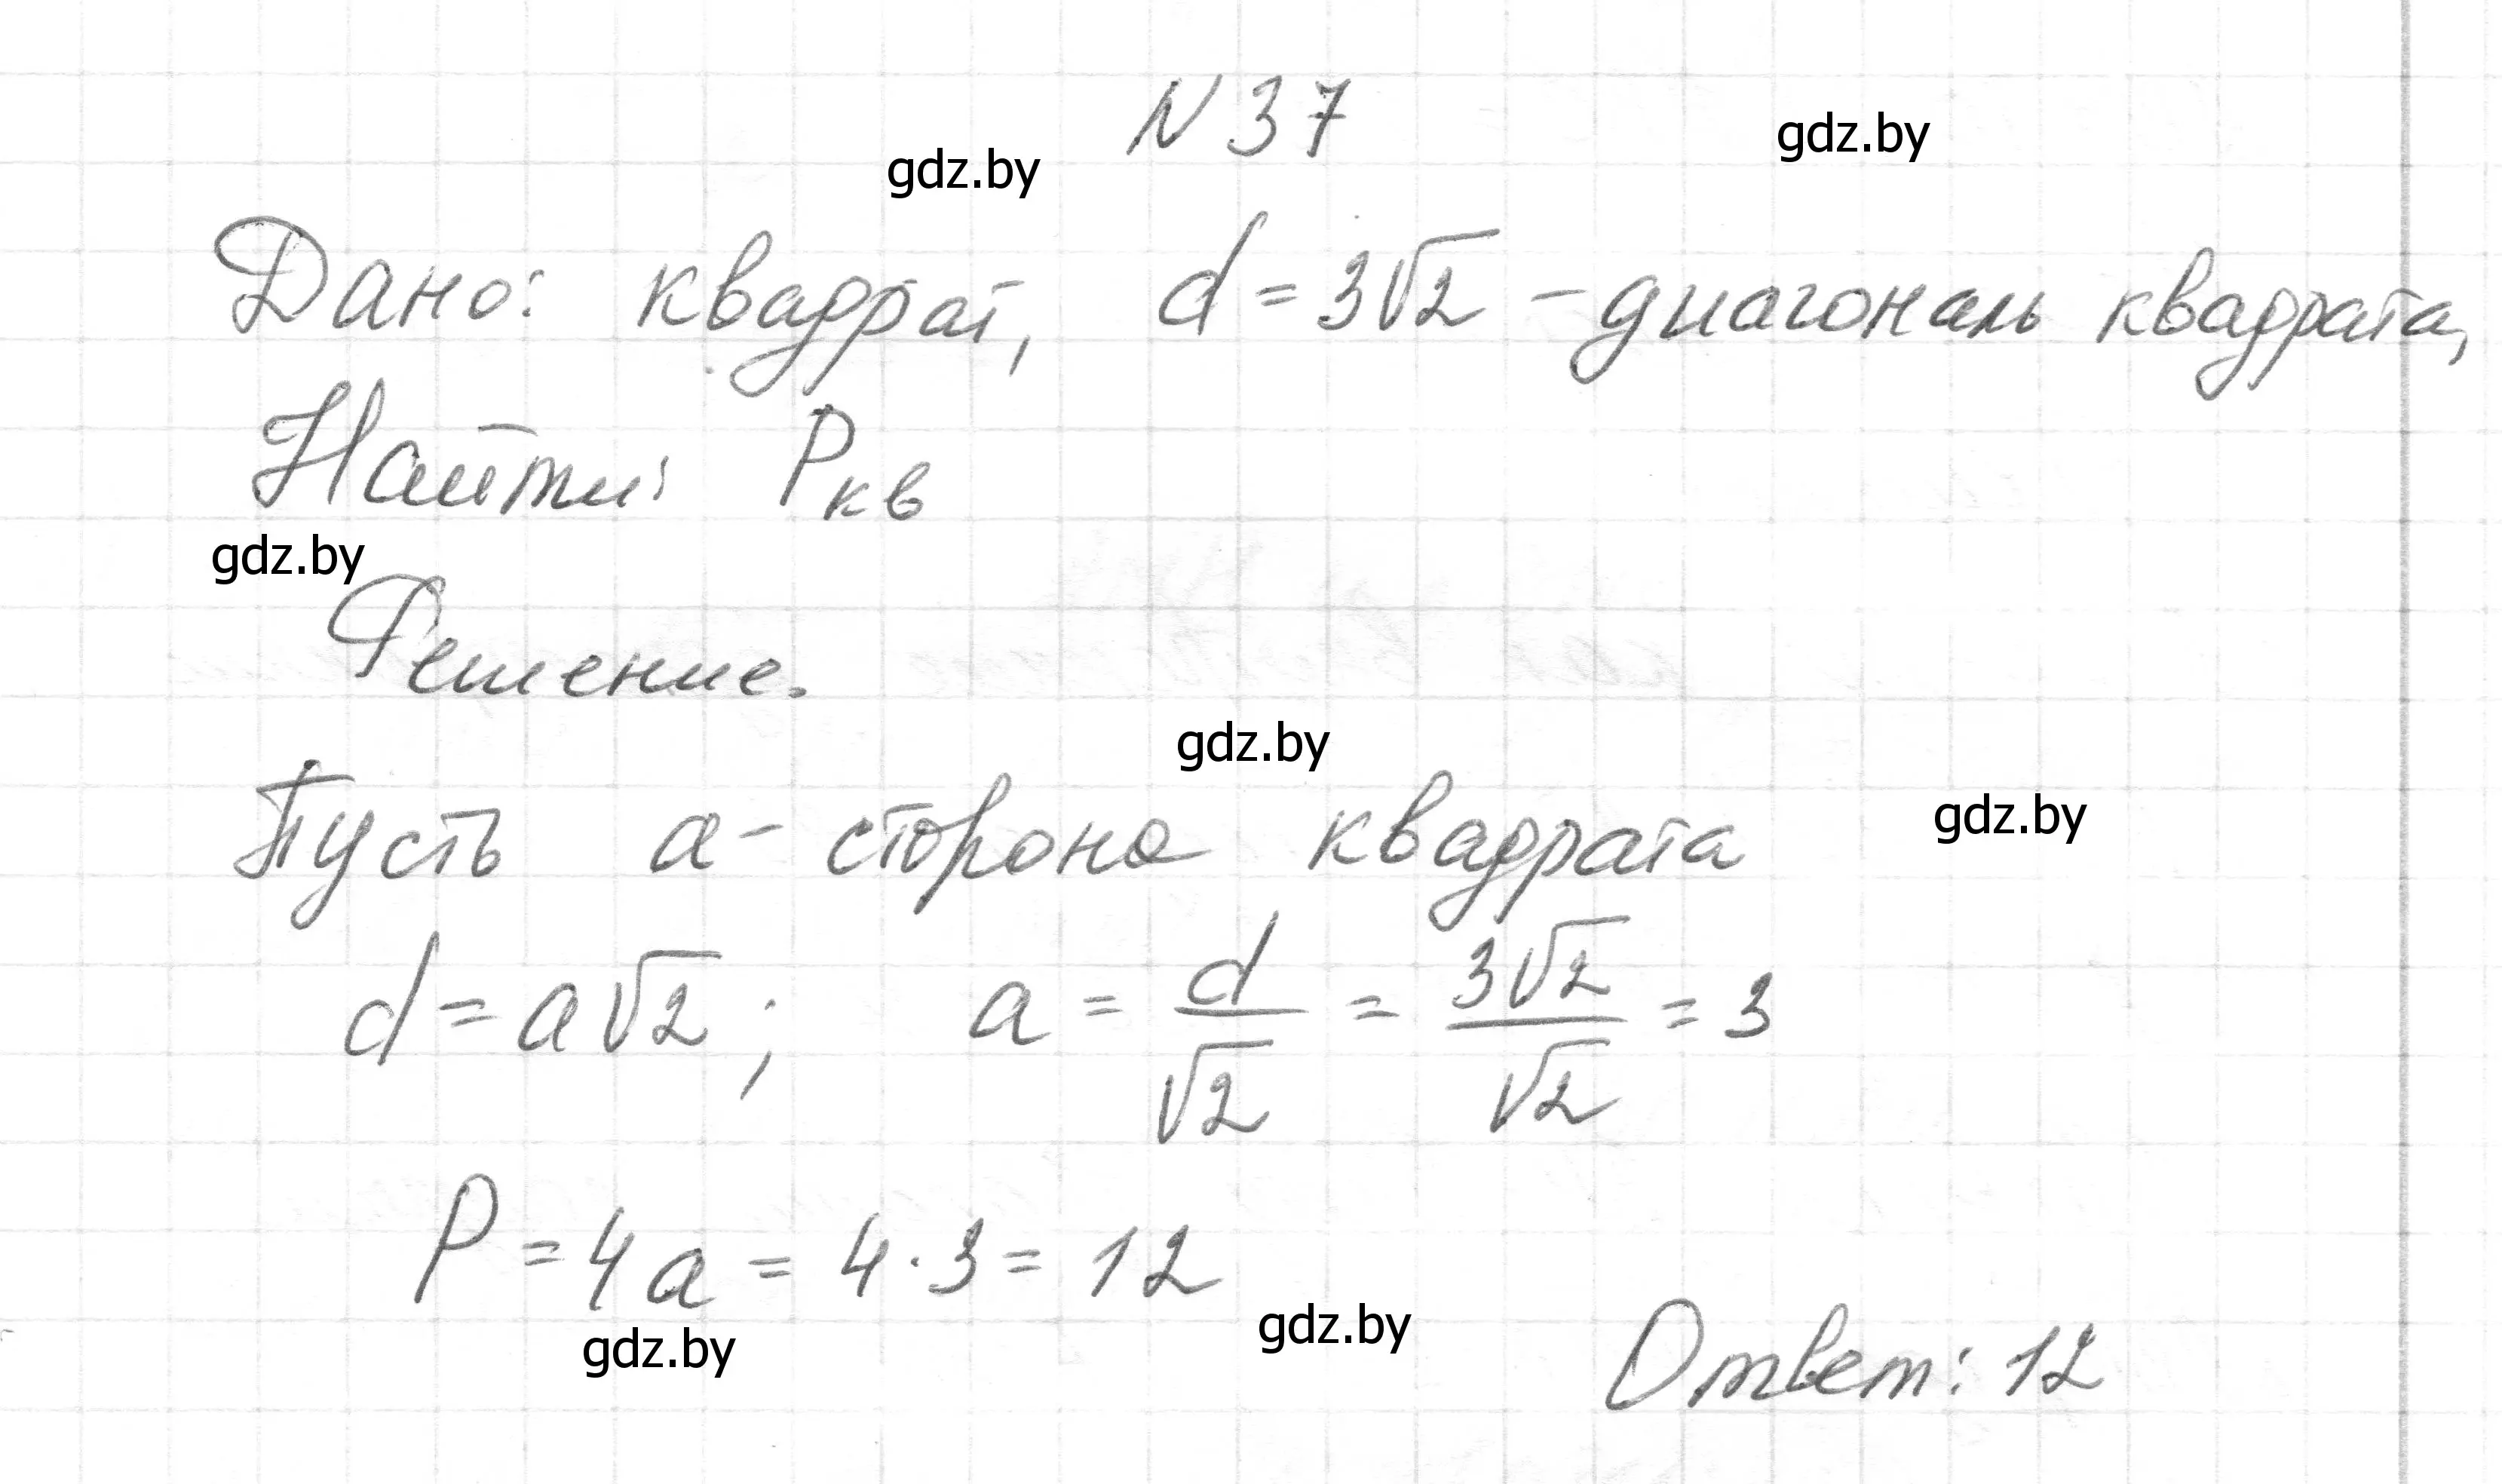 N 37
gdz.by
gdz.by
Дано: квадрат, d = 3√2 - диагональ квадрата,
Найти: Pкв
gdz.by
Решение.
gdz.by
Пусть a - сторона квадрата
gdz.by
d = a√2; a = d/√2 = 3√2/√2 = 3
P = 4a = 4·3 = 12
gdz.by
gdz.by
Ответ: 12